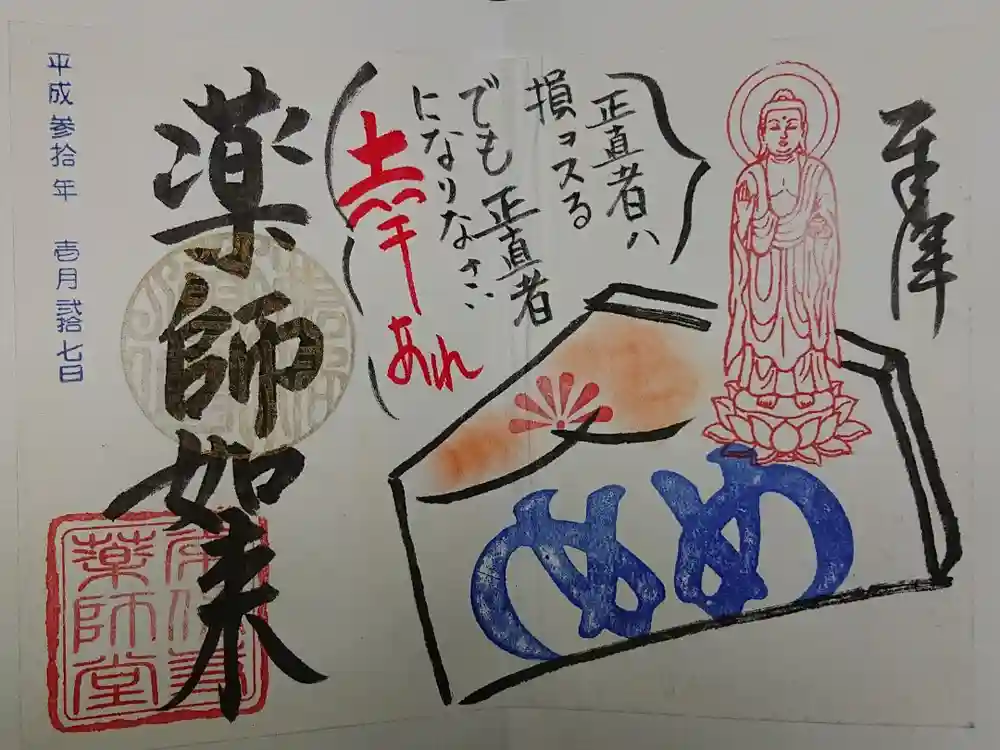 奉拝
正直者ハ
損ヲスる
でも 正直者
になりなさい
幸あれ
めめ
薬師如来
薬師堂
平成参拾年 壱月弐拾七日